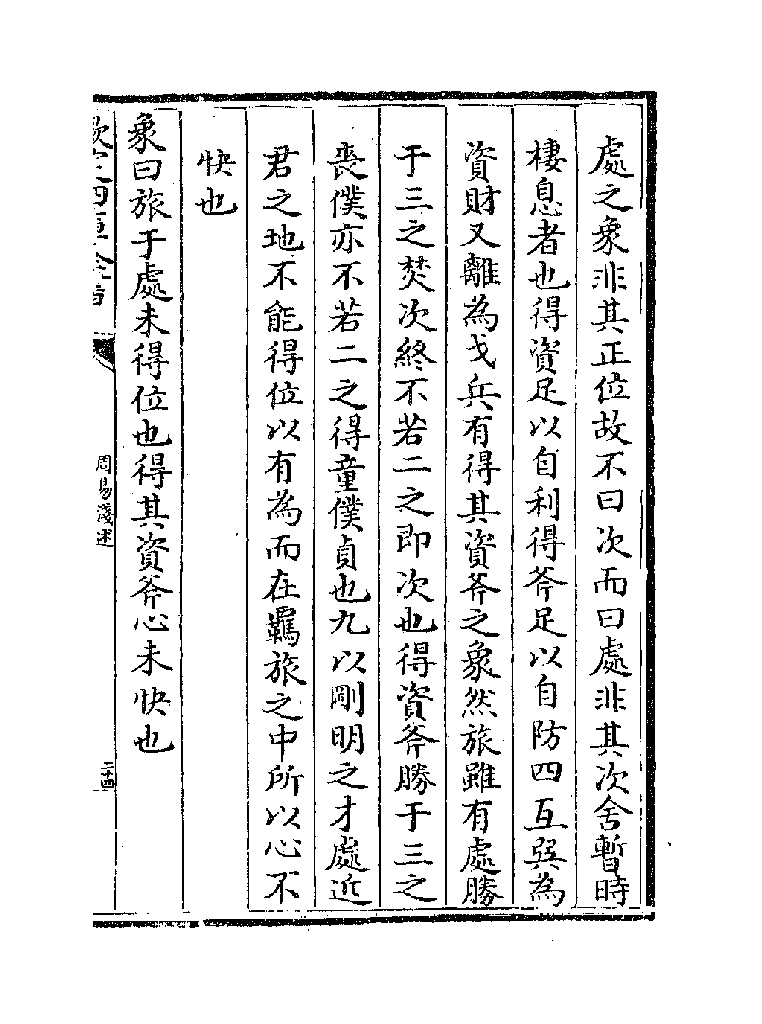 處之象非其正位故不曰次而曰處非其次舍暫時
棲息者也得資足以自利得斧足以自防四互巽為
資財又離為戈兵有得其資斧之象然旅雖有處勝
于三之焚次終不若二之即次也得資斧勝于三之
喪僕亦不若二之得童僕貞也九以剛明之才處近
君之地不能得位以有為而在羈旅之中所以心不
快也
象曰旅于處未得位也得其資斧心未快也
欽定四庫全書
周易淺述
二十四